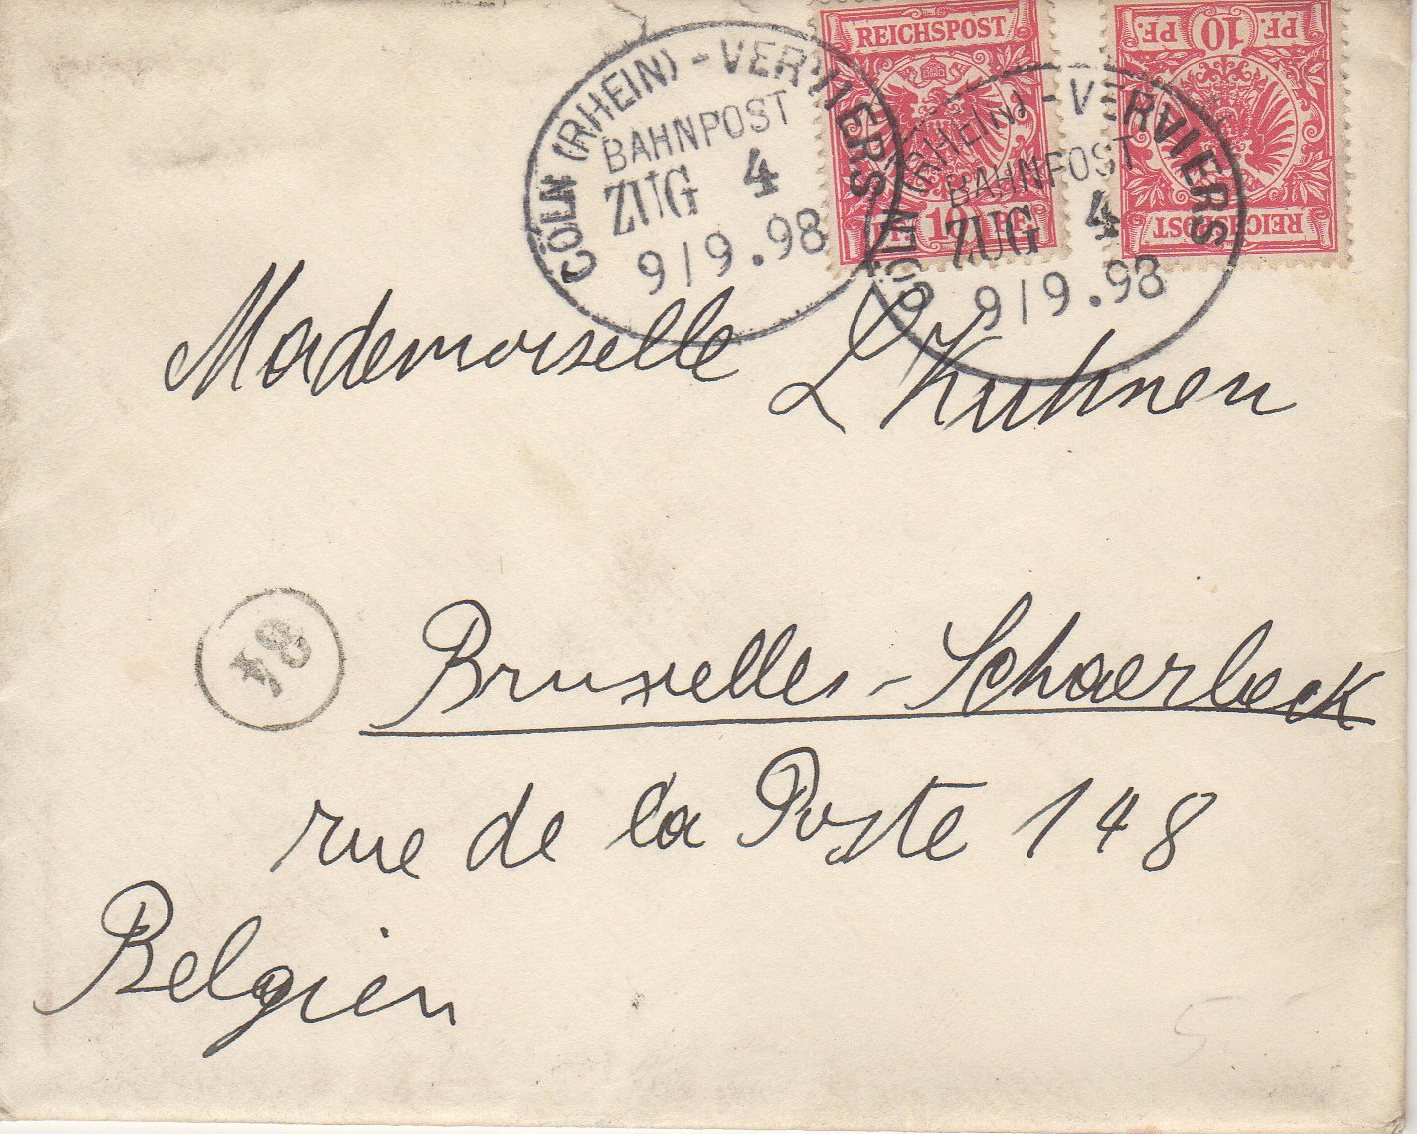 CÖLN (RHEIN) - VERVIERS
BAHNPOST
ZUG 4
9/9.98
REICHSPOST
PF. 10 PF.
CÖLN (RHEIN) - VERVIERS
BAHNPOST
ZUG 4
9/9.98
PF. 10 PF.
REICHSPOST
Mademoiselle L Kuhnen
84
Bruxelles-Schaerbeck
rue de la Poste 148
Belgien
5